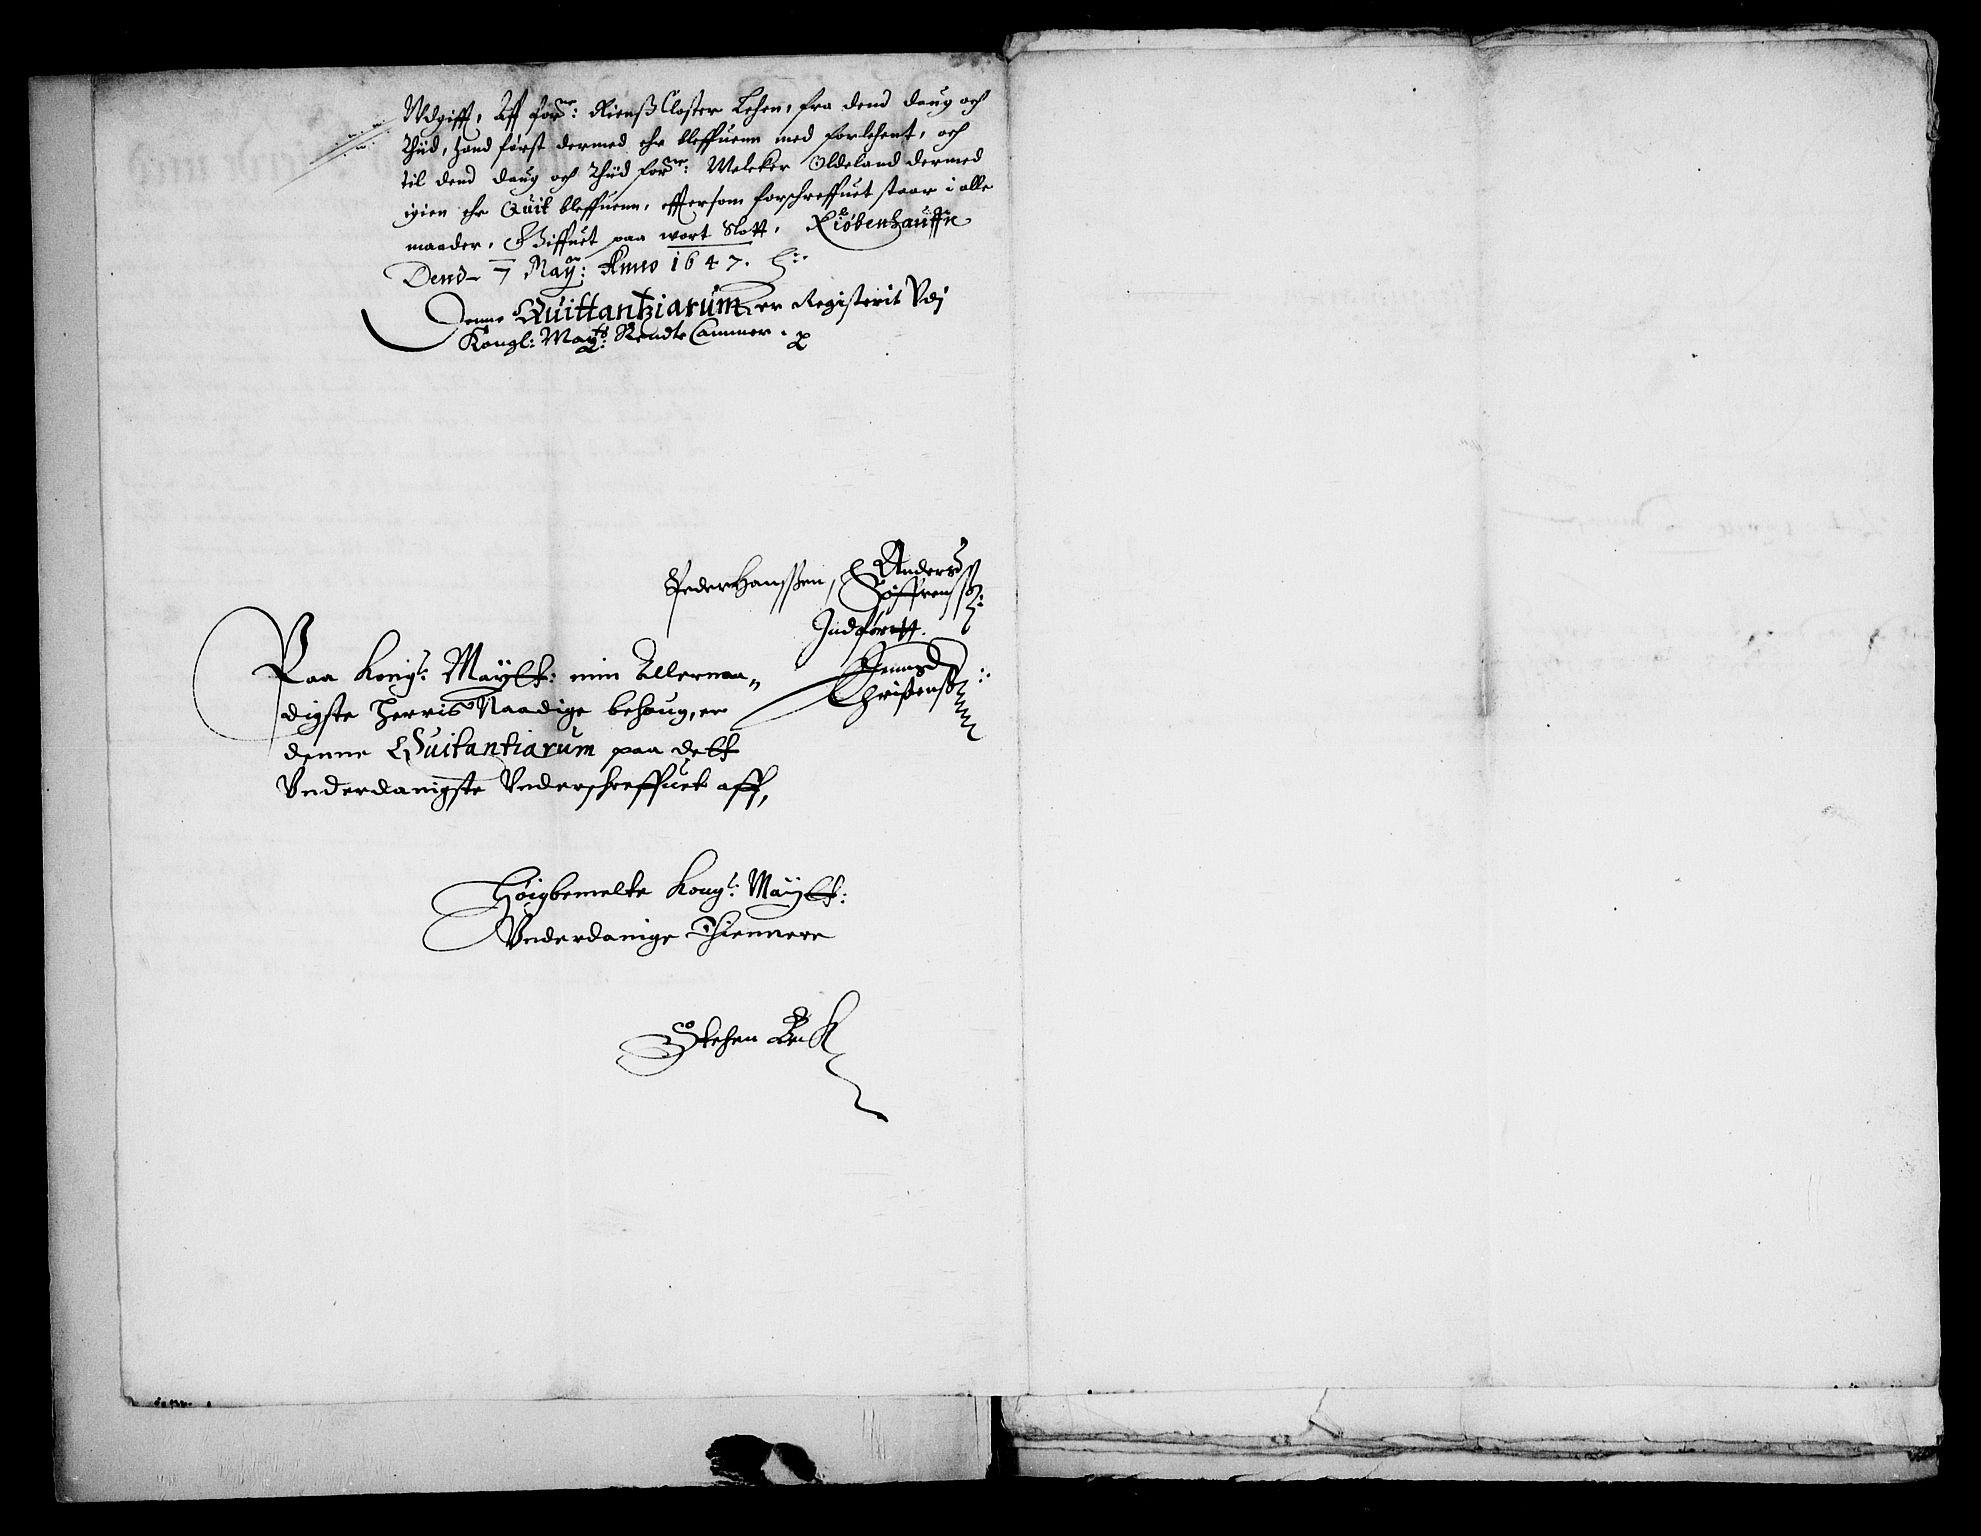 Udgifft, Aff for^ne: Rienß Closter Lehen, fra dend daug och
Thiid, hand først dermed ehr bleffuenn med forlehent, och
til dend daug och Thiid for^ne: Meleker Oldeland dermed
igien ehr Quit bleffuenn, effttersom forschreffuet staar i alle
maader, Giffuet paa wort Slott, Kiöbenhauffn
Dend 7 Maÿ: Anno 1647.
Denne Quittantziarum er Registerit Udj
Kongl: May^ts: Rendte Cammer.
Peder Hanssßen, Anders
Söffrenss:
Indførtt.
Jens
Christenß
Paa Kong^l: Maÿtt: min Allernaa„
digste Herris Naadige behaug, er
denne Quitantiarum paa dett
Underdanigste Underschreffuet aff,
Høigbemelte Kong^l: Maÿtt:
Underdanige Thiennere
Stehen Beck